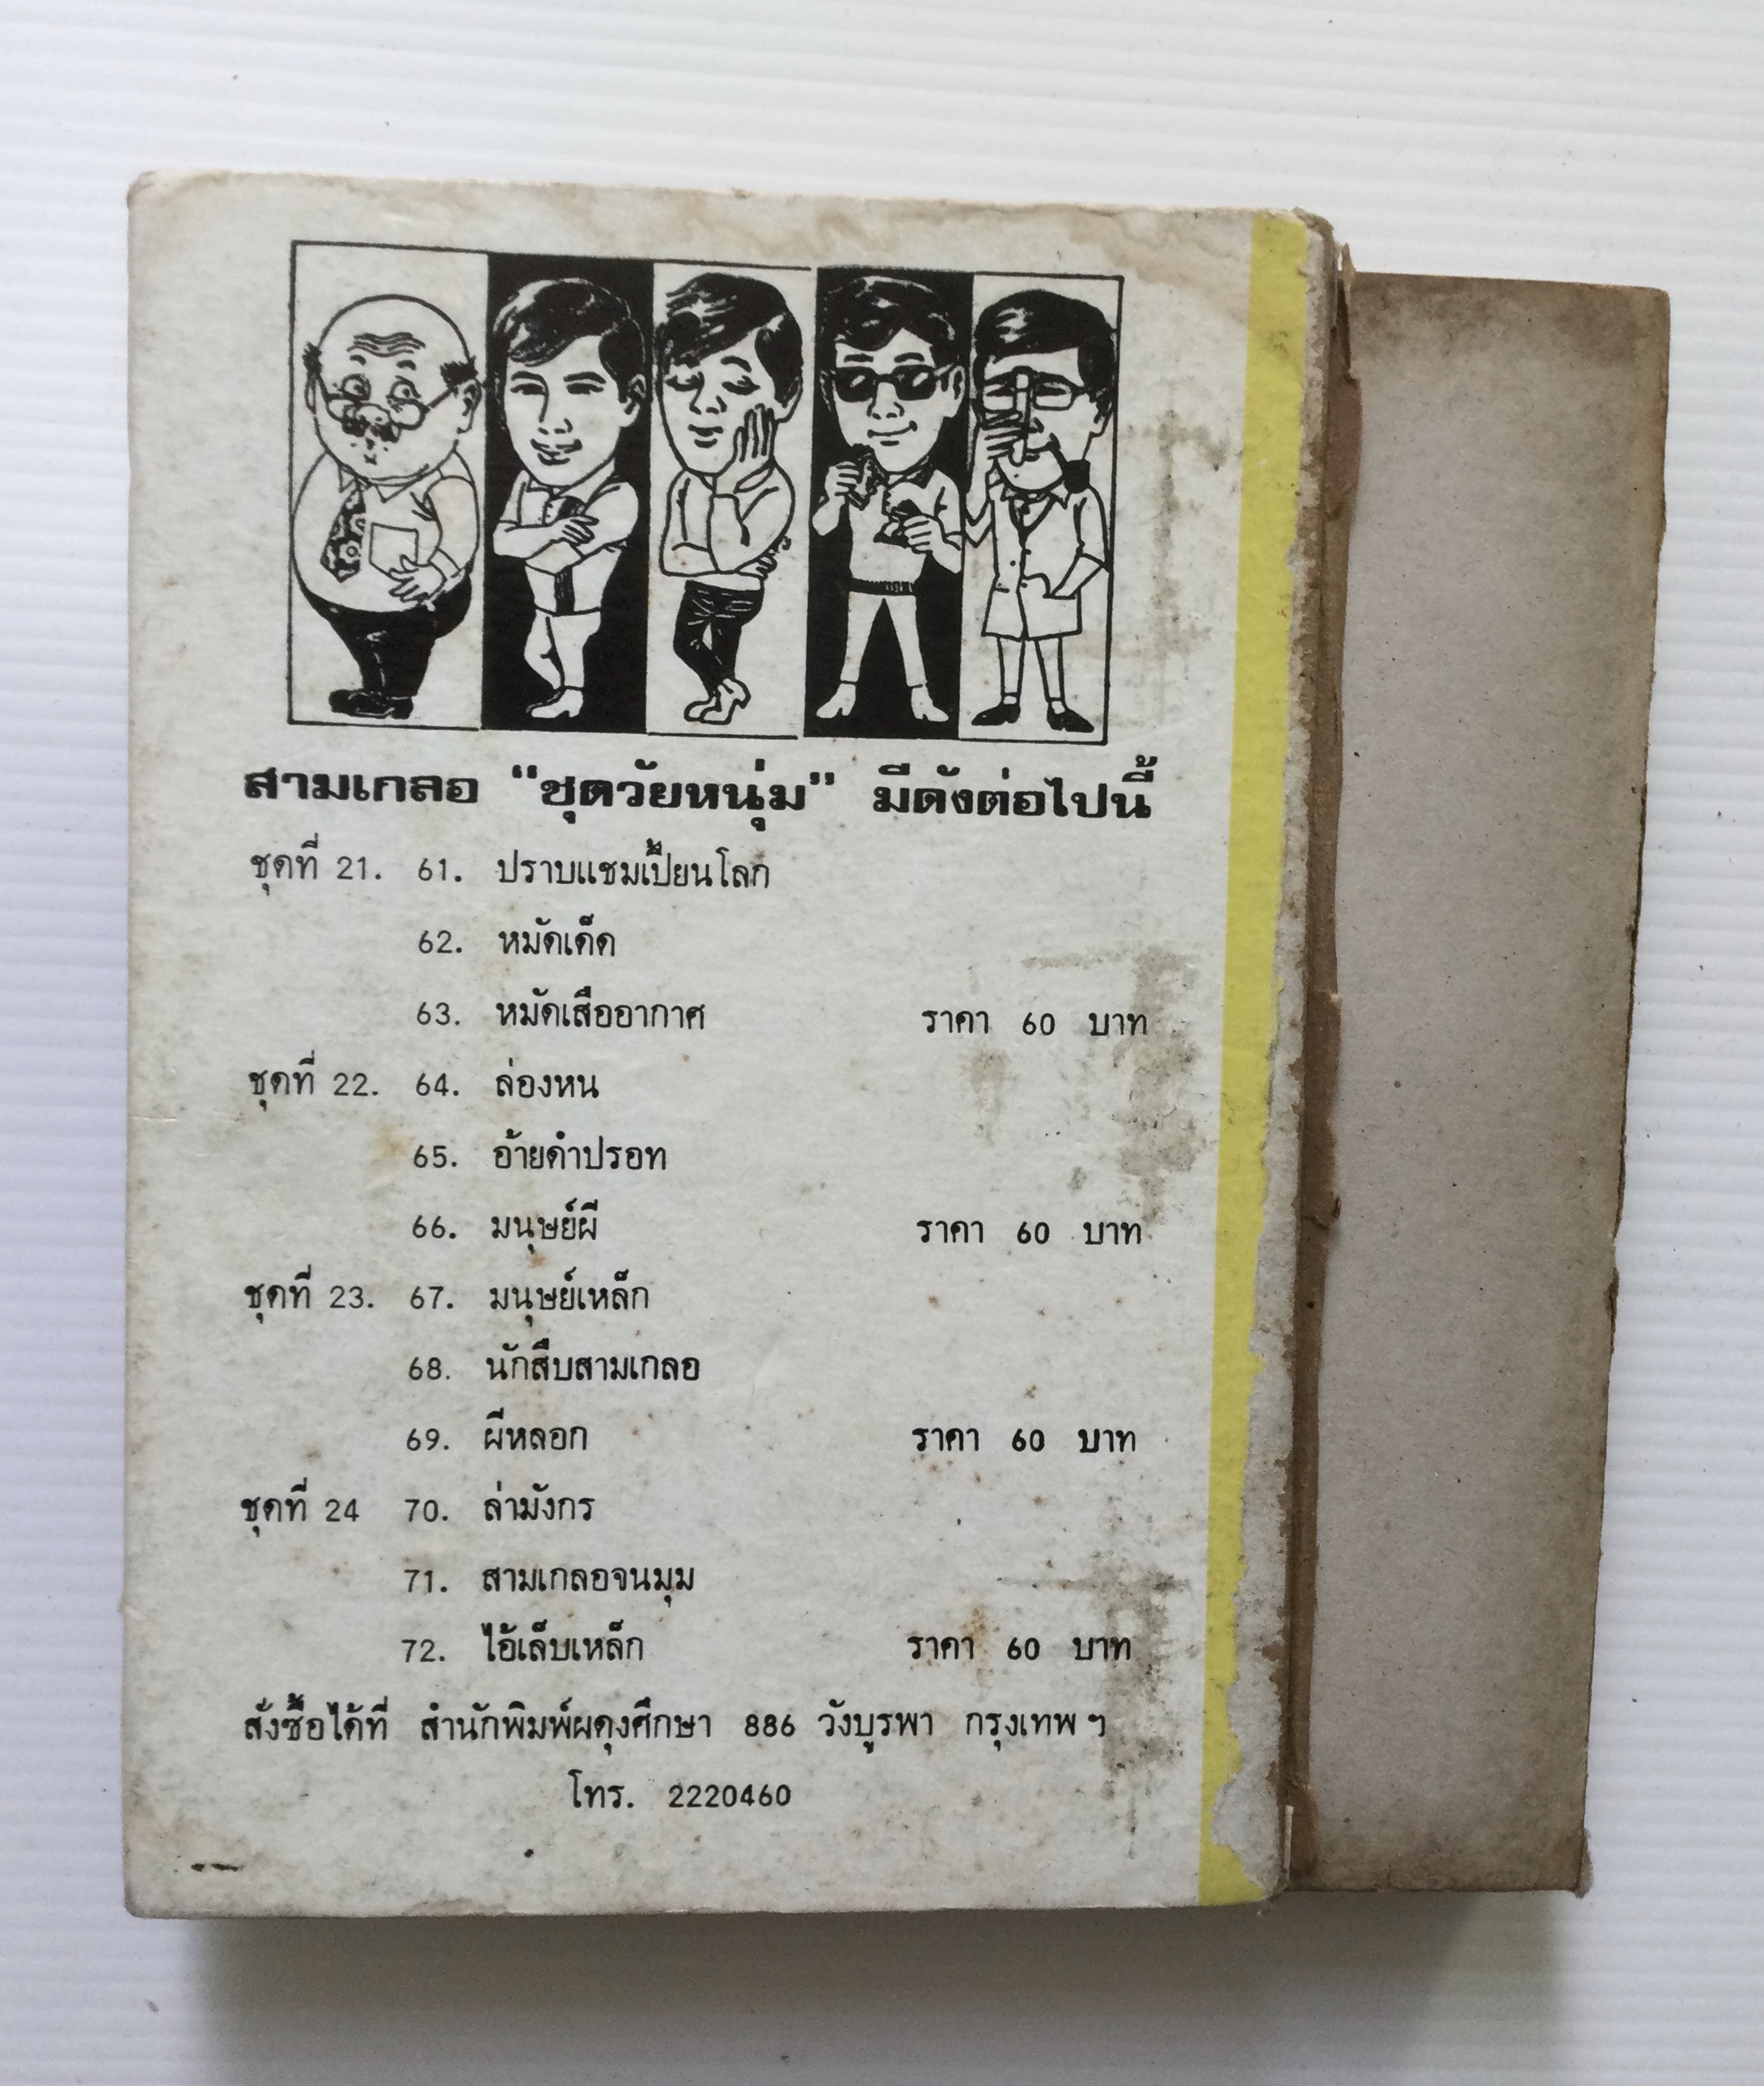 สามเกลอ "ชุดวัยหนุ่ม" มีดังต่อไปนี้
ชุดที่ 21. 61. ปราบแชมเปี้ยนโลก
62. หมัดเด็ด
63. หมัดเสืออากาศ ราคา 60 บาท
ชุดที่ 22. 64. ล่องหน
65. อ้ายดำปรอท
66. มนุษย์ผี ราคา 60 บาท
ชุดที่ 23. 67. มนุษย์เหล็ก
68. นักสืบสามเกลอ
69. ผีหลอก ราคา 60 บาท
ชุดที่ 24 70. ล่ามังกร
71. สามเกลอจนมุม
72. ไอ้เล็บเหล็ก ราคา 60 บาท
สั่งซื้อได้ที่ สำนักพิมพ์ผดุงศึกษา 886 วังบูรพา กรุงเทพ ฯ
โทร. 2220460